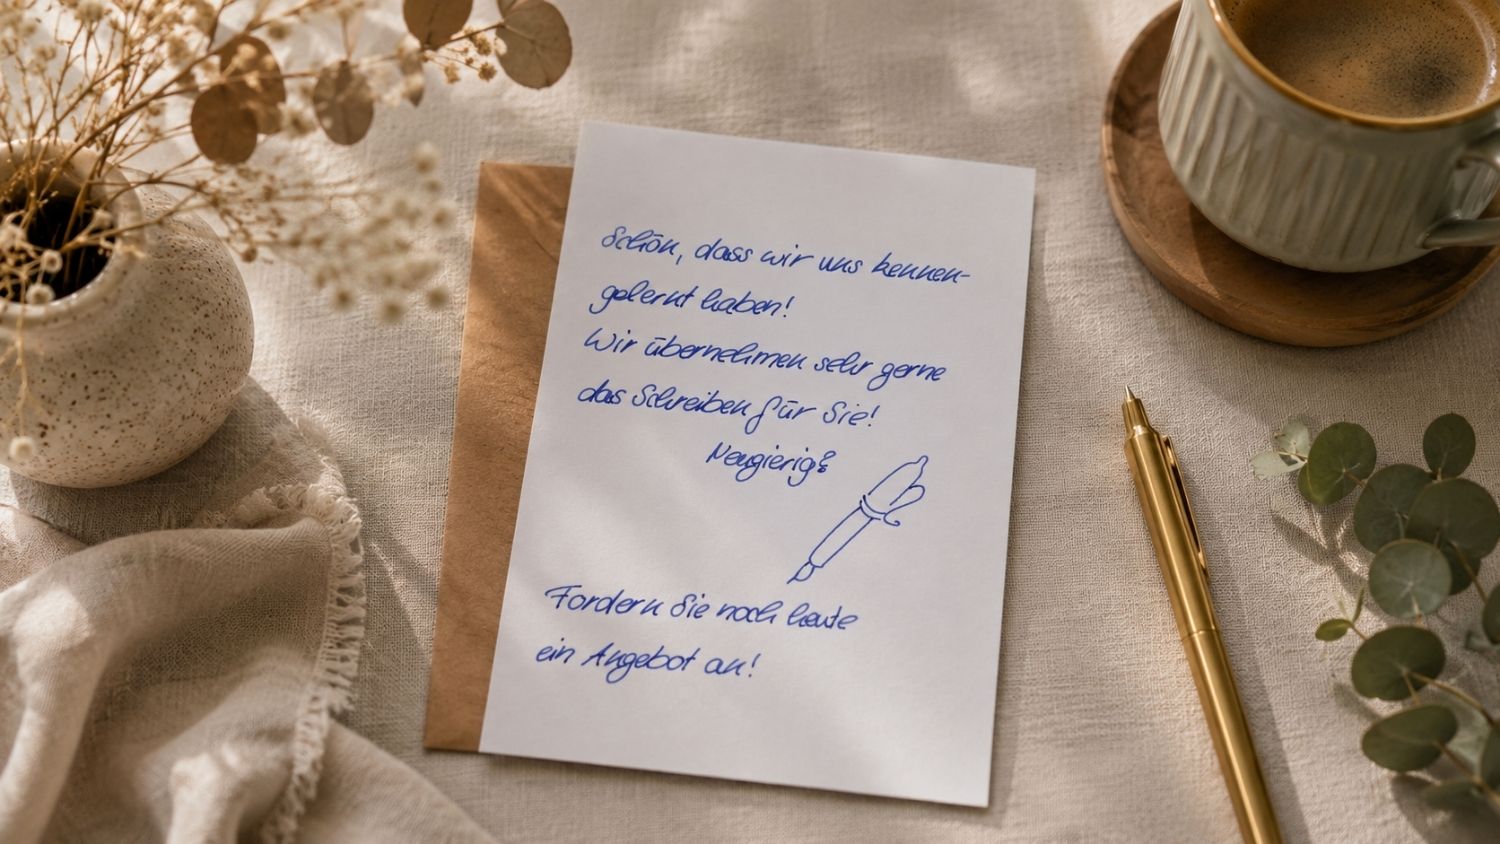 Schön, dass wir uns kennen-
gelernt haben!
Wir übernehmen sehr gerne
das Schreiben für Sie!
Neugierig?
Fordern Sie noch heute
ein Angebot an!